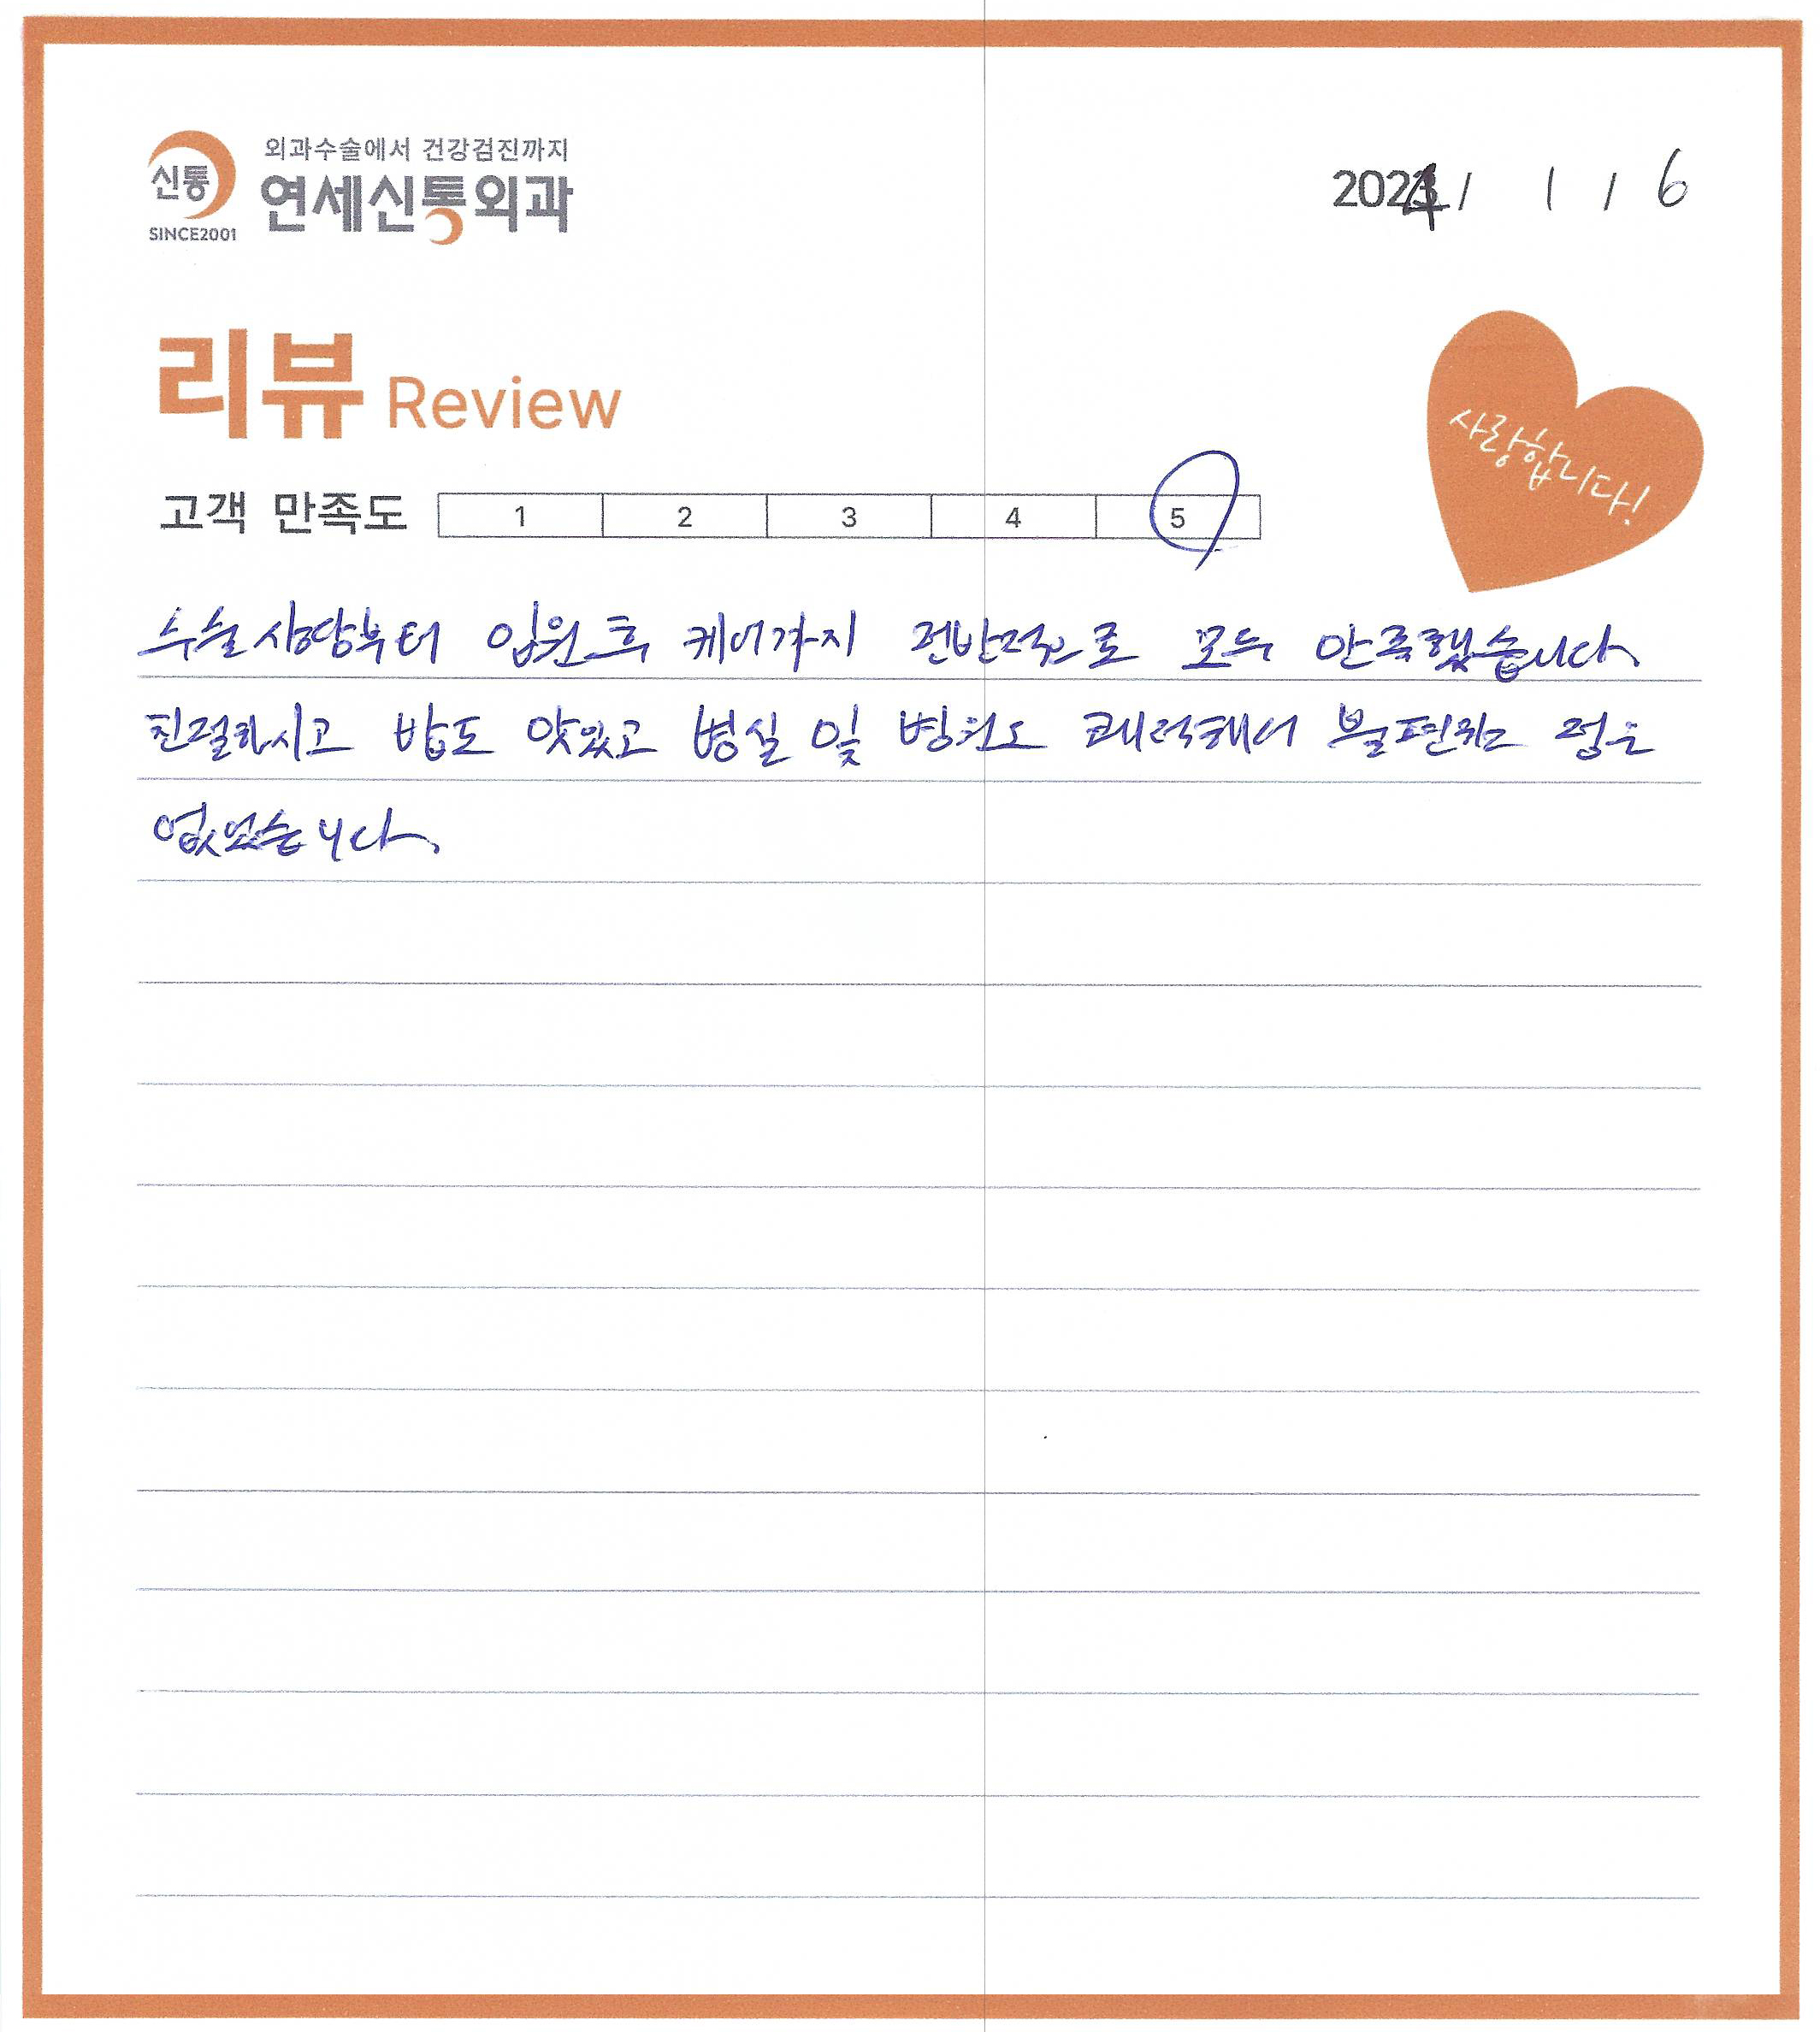 신통
SINCE2001
외과수술에서 건강검진까지
연세신통외과
2024 / 1 / 6
리뷰 Review
사랑합니다!
고객 만족도 1 2 3 4 5
수술 상담부터 입원 후 케어까지 전반적으로 모두 만족했습니다.
친절하시고 밥도 맛있고 병실 및 병원도 쾌적해서 불편한 점은
없었습니다.